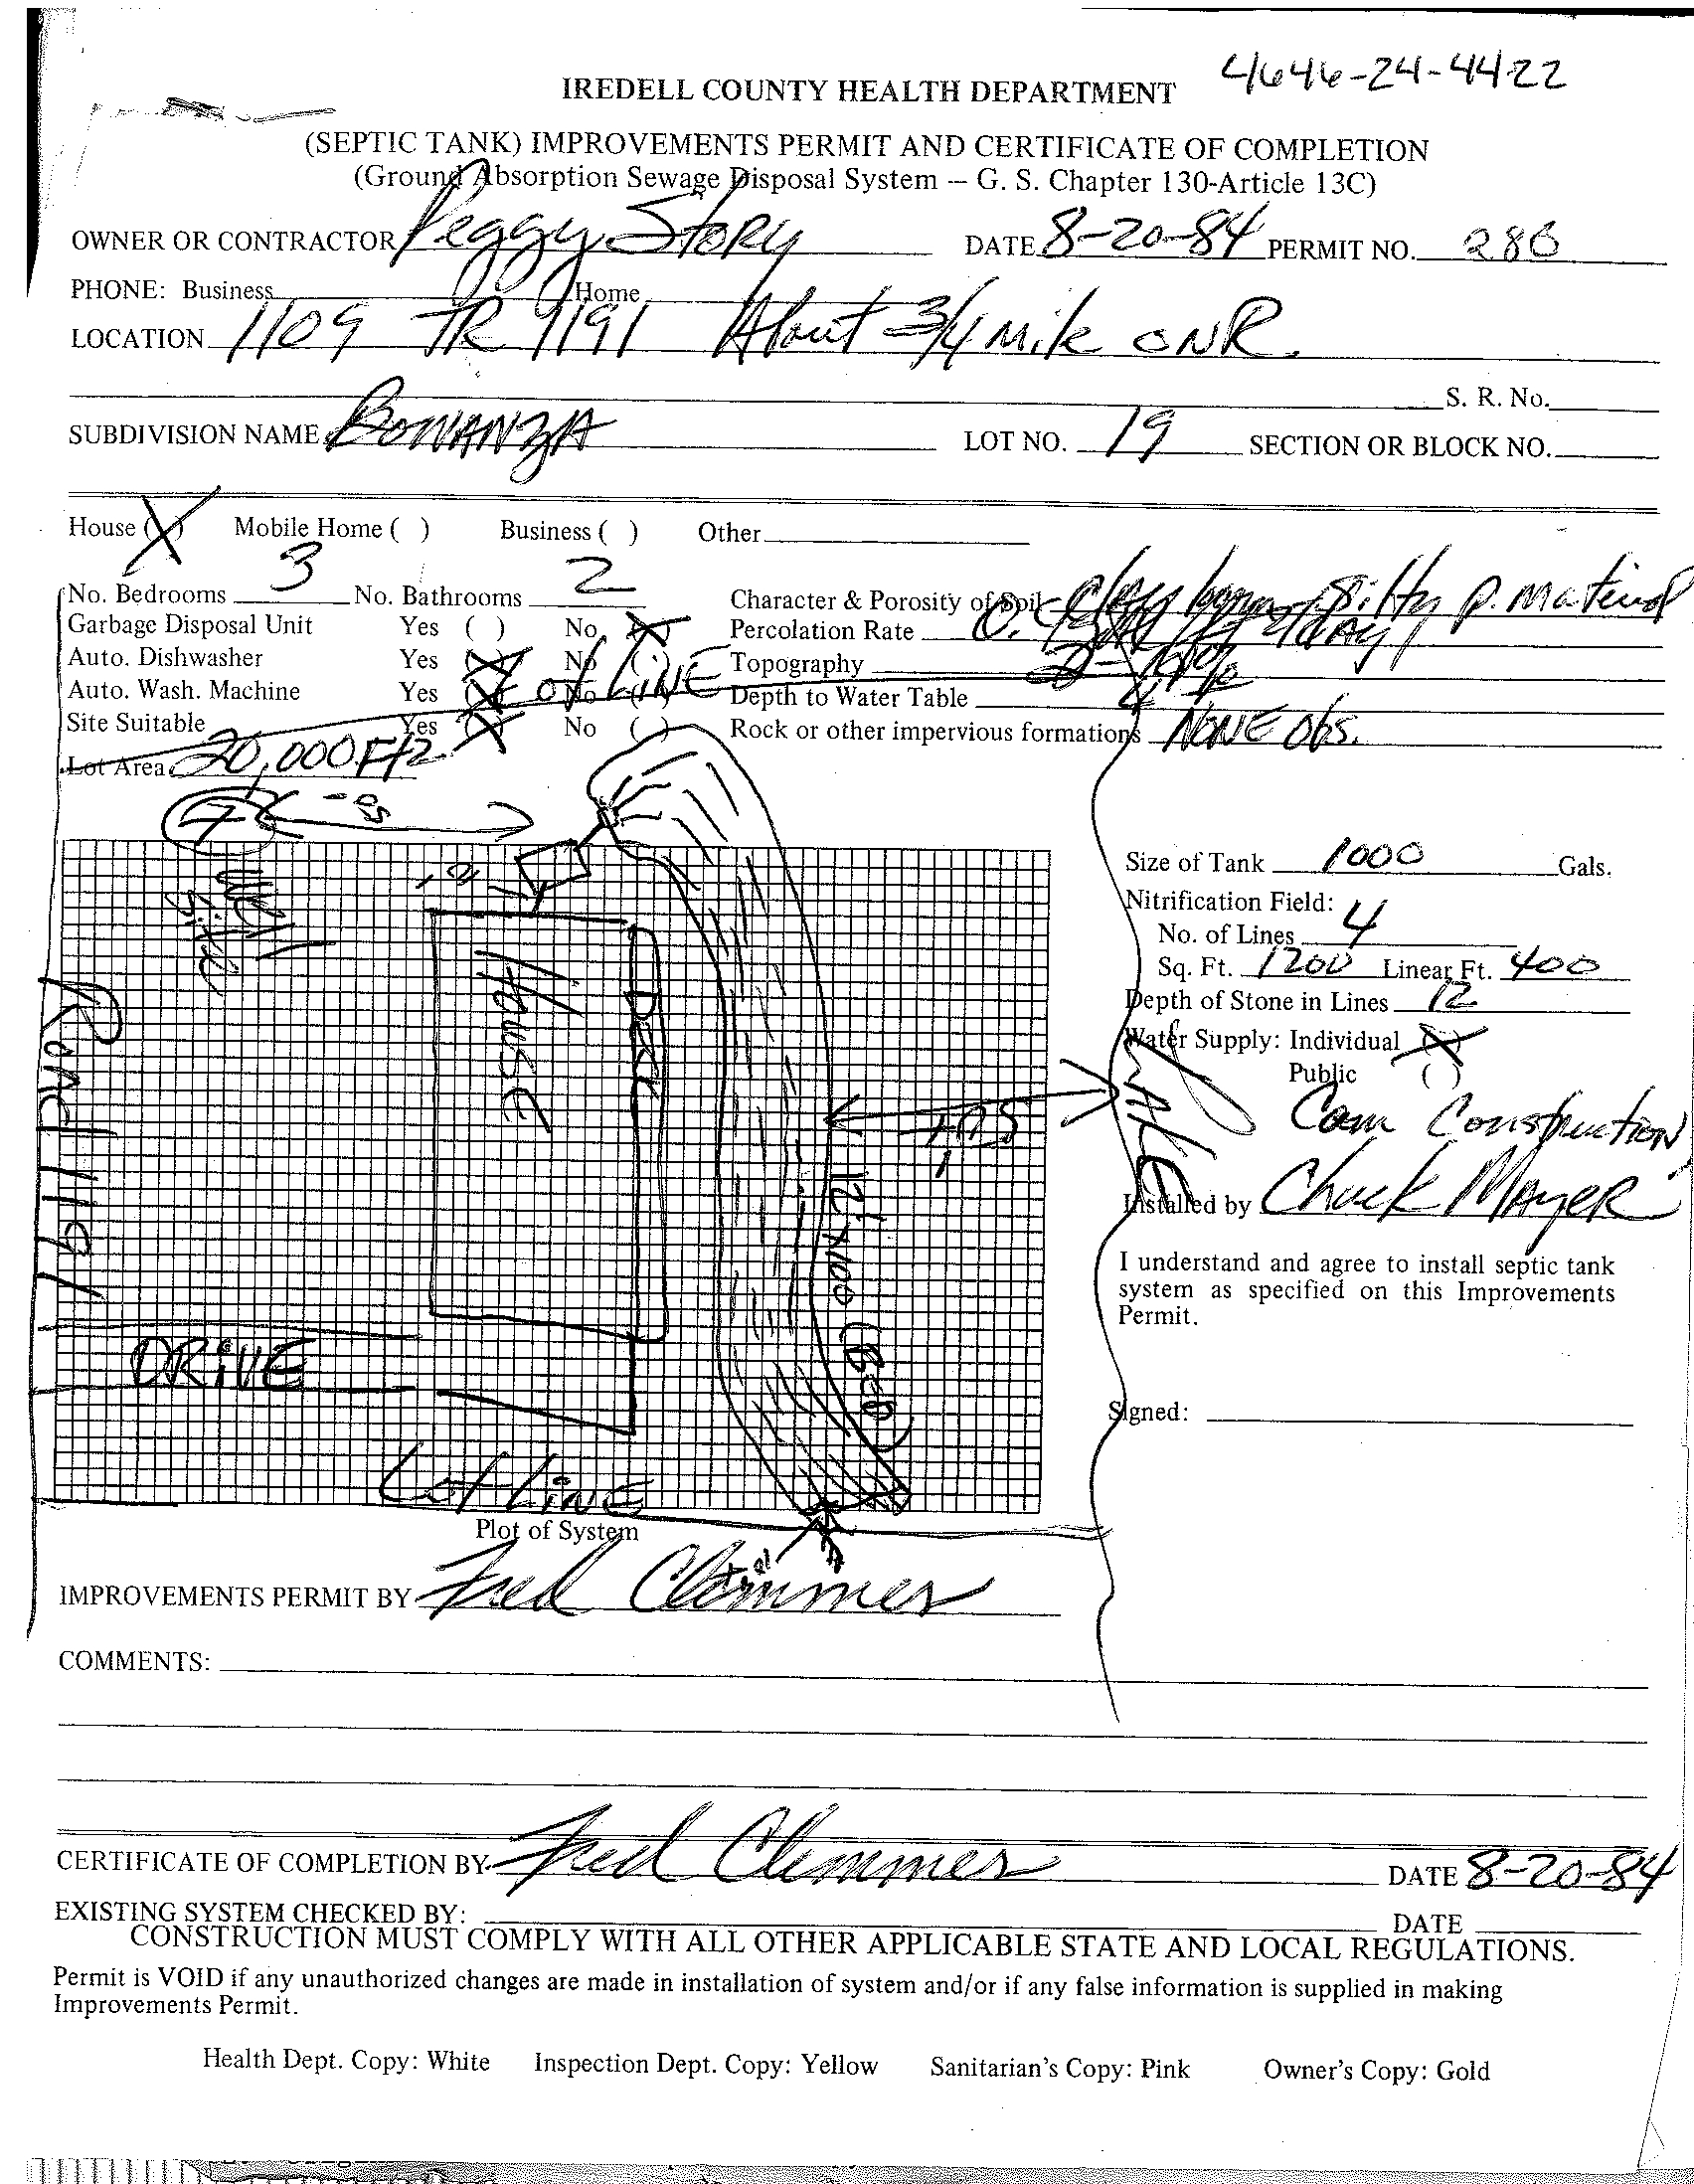 4646-24-4422
IREDELL COUNTY HEALTH DEPARTMENT
(SEPTIC TANK) IMPROVEMENTS PERMIT AND CERTIFICATE OF COMPLETION
(Ground Absorption Sewage Disposal System – G. S. Chapter 130-Article 13C)
OWNER OR CONTRACTOR Peggy Story DATE 8-20-84 PERMIT NO. 286
PHONE: Business Home
LOCATION 1109 TR 1191 About 3/4 mile ON R.
S. R. No.
SUBDIVISION NAME BONANZA LOT NO. 19 SECTION OR BLOCK NO.
House (X) Mobile Home ( ) Business ( ) Other
No. Bedrooms 3 No. Bathrooms 2 Character & Porosity of Soil clay loam silty p. material
Garbage Disposal Unit Yes ( ) No (X) Percolation Rate
Auto. Dishwasher Yes (X) No ( ) Topography
Auto. Wash. Machine Yes (X) No ( ) Depth to Water Table
Lot LINE
Site Suitable Yes (X) No ( ) Rock or other impervious formations NONE Obs.
Lot Area 20,000 Ft2
Size of Tank 1000 Gals.
Nitrification Field:
No. of Lines 4
Sq. Ft. 1200 Linear Ft. 400
Depth of Stone in Lines 12
Water Supply: Individual (X)
Public ( )
Well Site
House
Deck
Road 1191
LAKE
12' x 100 (BED)
DRIVE
Lot LINE
Com Construction
Installed by Chuck Mayer
I understand and agree to install septic tank
system as specified on this Improvements
Permit.
Signed:
Plot of System
IMPROVEMENTS PERMIT BY Fred Clemmer
COMMENTS:
CERTIFICATE OF COMPLETION BY Fred Clemmer DATE 8-20-84
EXISTING SYSTEM CHECKED BY: DATE
CONSTRUCTION MUST COMPLY WITH ALL OTHER APPLICABLE STATE AND LOCAL REGULATIONS.
Permit is VOID if any unauthorized changes are made in installation of system and/or if any false information is supplied in making
Improvements Permit.
Health Dept. Copy: White Inspection Dept. Copy: Yellow Sanitarian's Copy: Pink Owner's Copy: Gold